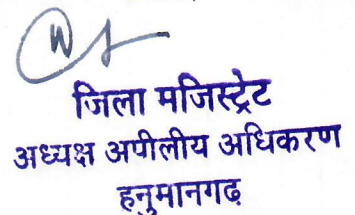 जिला मजिस्ट्रेट
अध्यक्ष अपीलीय अधिकरण
हनुमानगढ़